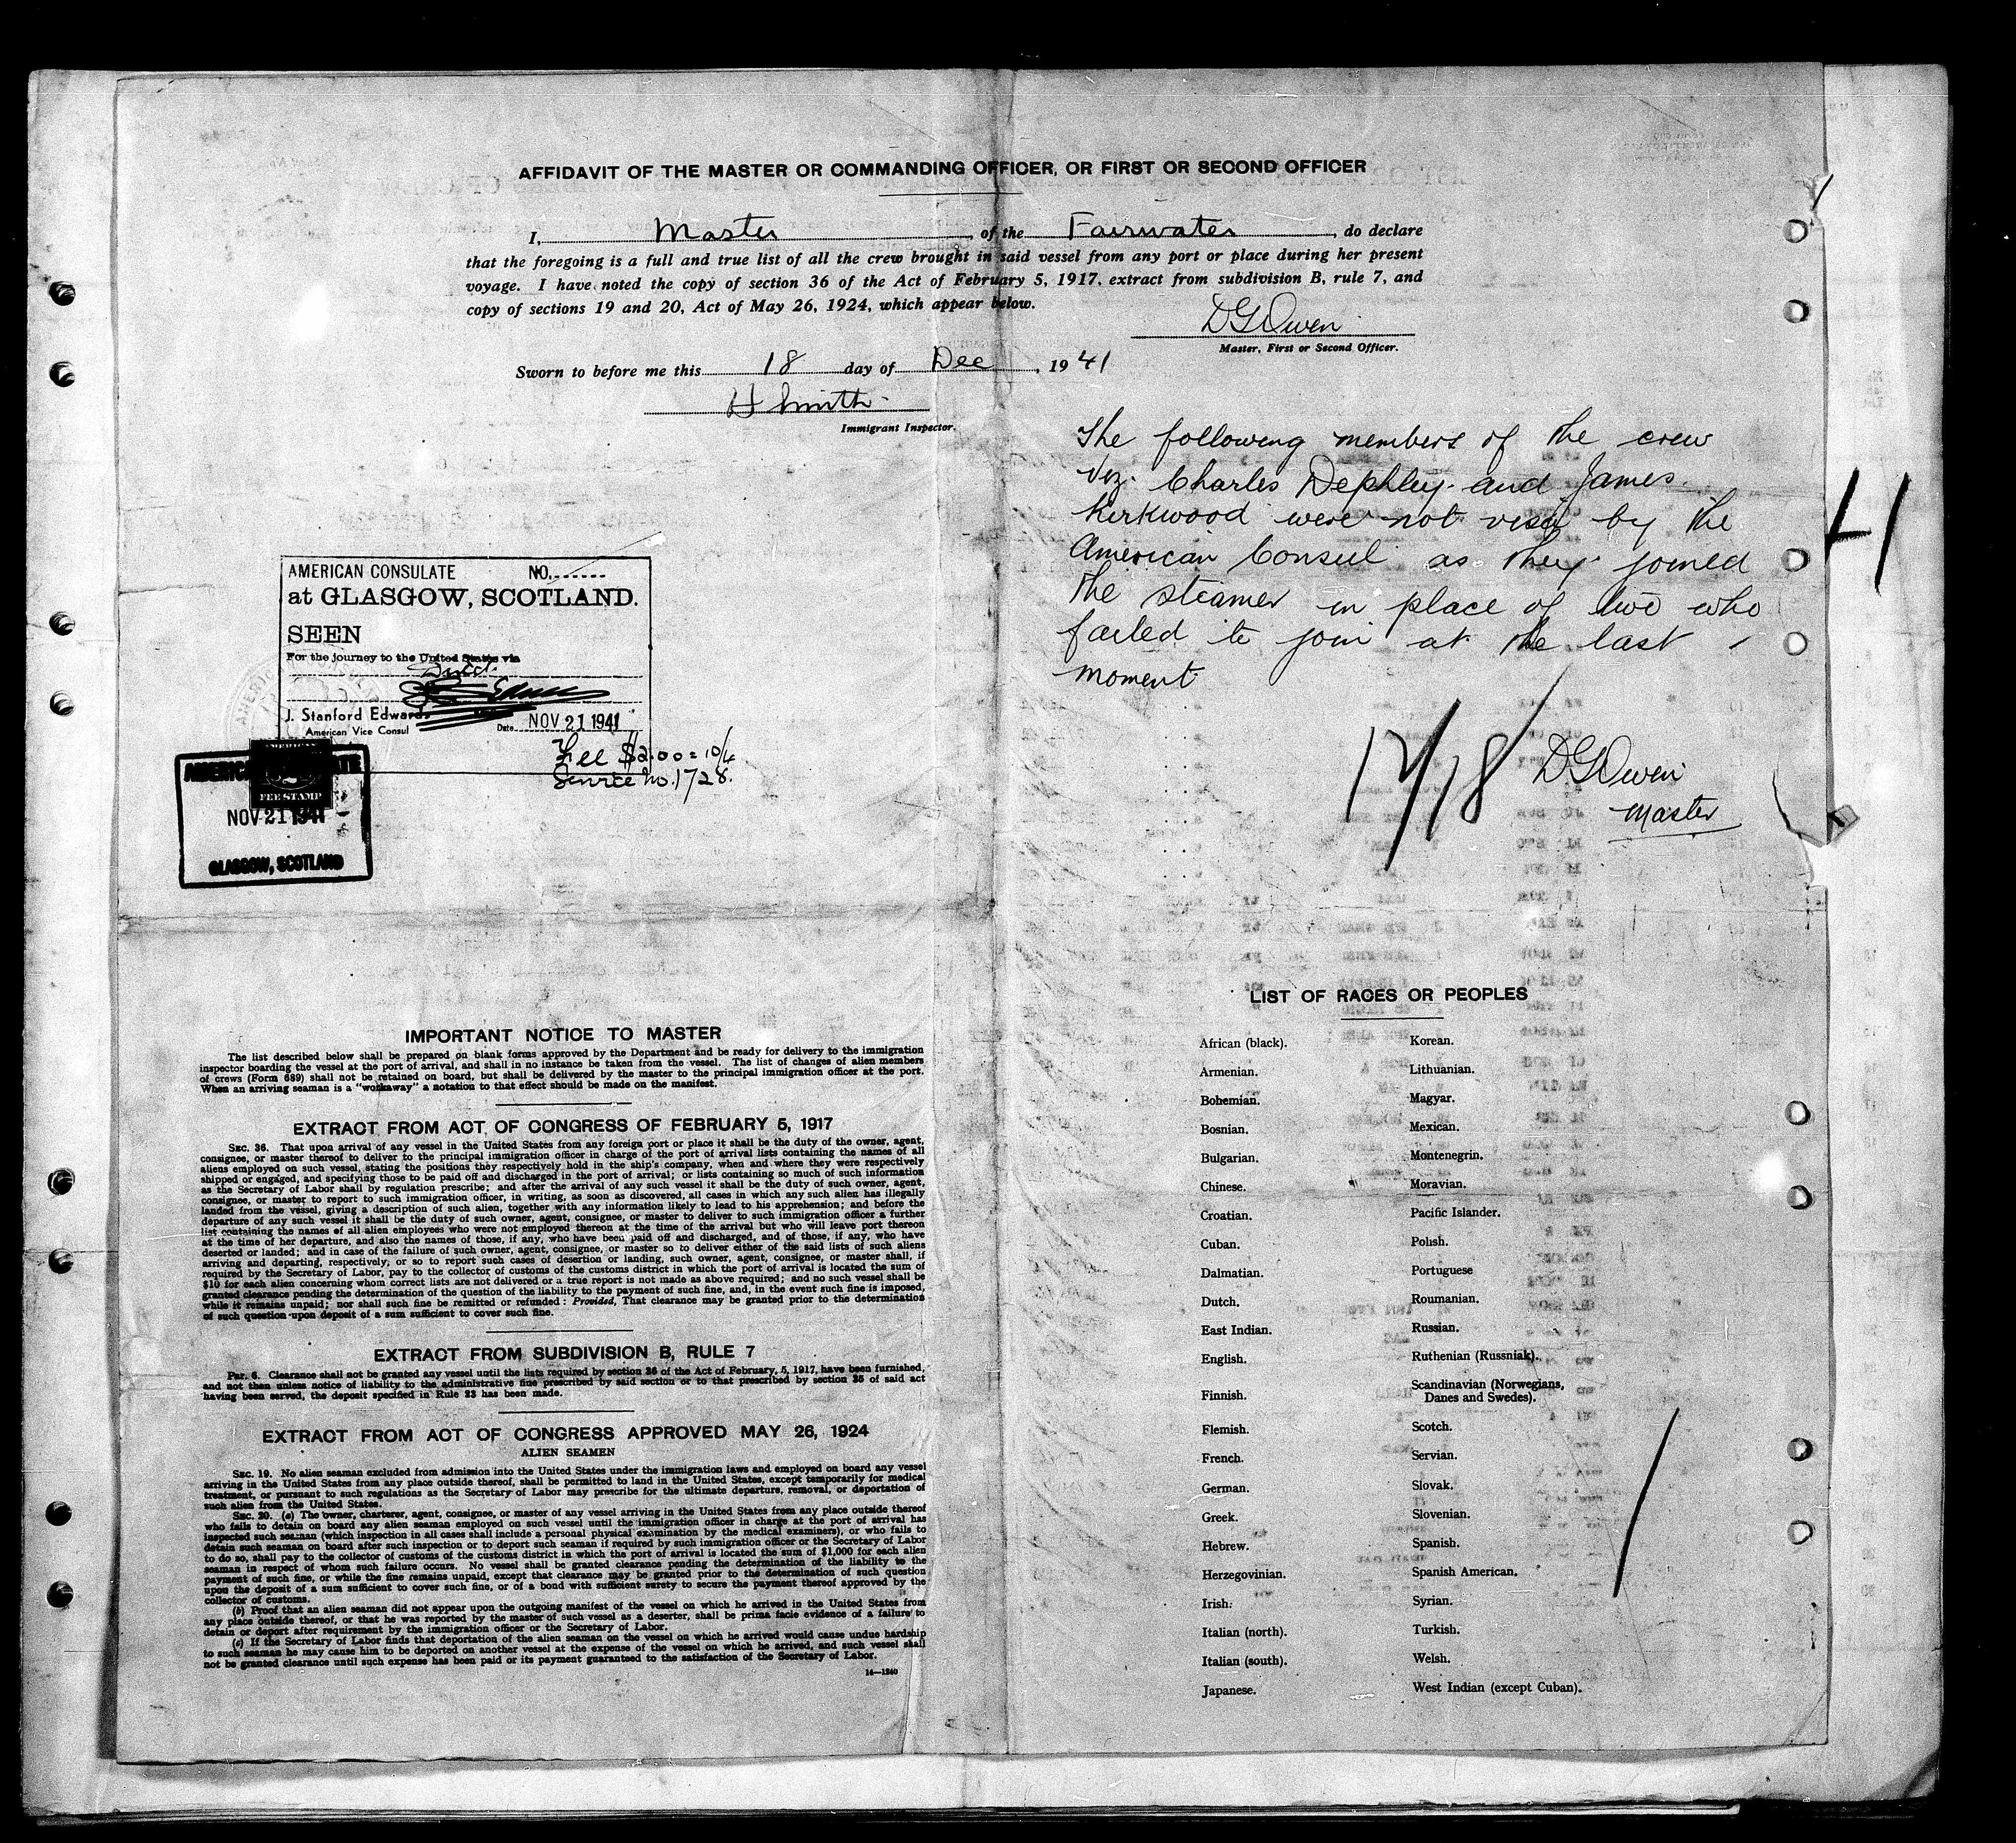 AFFIDAVIT OF THE MASTER OR COMMANDING OFFICER, OR FIRST OR SECOND OFFICER
I, Master, of the Fairwater, do declare
that the foregoing is a full and true list of all the crew brought in said vessel from any port or place during her present
voyage. I have noted the copy of section 36 of the Act of February 5, 1917, extract from subdivision B, rule 7, and
copy of sections 19 and 20, Act of May 26, 1924, which appear below.
DGOwen
Master, First or Second Officer.
Sworn to before me this 18 day of Dec, 1941
H Smith
Immigrant Inspector.
The following members of the crew
viz. Charles Dephley and James
Kirkwood were not visa by the
American Consul as they joined
the steamer in place of two who
failed to join at the last
moment
12/18
DGOwen
Master
AMERICAN CONSULATE NO.
at GLASGOW, SCOTLAND.
SEEN
For the journey to the United States via
Direct
J. Stanford Edwards
American Vice Consul
Date NOV 21 1941
Fee $2.00 = 10/4
Service No. 1728.
AMERICAN
FEE STAMP
NOV 21 1941
GLASGOW, SCOTLAND
IMPORTANT NOTICE TO MASTER
The list described below shall be prepared on blank forms approved by the Department and be ready for delivery to the immigration
inspector boarding the vessel at the port of arrival, and shall in no instance be taken from the vessel. The list of changes of alien members
of crews (Form 689) shall not be retained on board, but shall be delivered by the master to the principal immigration officer at the port.
When an arriving seaman is a "workaway" a notation to that effect should be made on the manifest.
EXTRACT FROM ACT OF CONGRESS OF FEBRUARY 5, 1917
SEC. 36. That upon arrival of any vessel in the United States from any foreign port or place it shall be the duty of the owner, agent,
consignee, or master thereof to deliver to the principal immigration officer in charge of the port of arrival lists containing the names of all
aliens employed on such vessel, stating the positions they respectively hold in the ship's company, when and where they were respectively
shipped or engaged, and specifying those to be paid off and discharged in the port of arrival; or lists containing so much of such information
as the Secretary of Labor shall by regulation prescribe; and after the arrival of any such vessel it shall be the duty of such owner, agent,
consignee, or master to report to such immigration officer, in writing, as soon as discovered, all cases in which any such alien has illegally
landed from the vessel, giving a description of such alien, together with any information likely to lead to his apprehension; and before the
departure of any such vessel it shall be the duty of such owner, agent, consignee, or master to deliver to such immigration officer a further
list containing the names of all alien employees who were not employed thereon at the time of the arrival but who will leave port thereon
at the time of her departure, and also the names of those, if any, who have been paid off and discharged, and of those, if any, who have
deserted or landed; and in case of the failure of such owner, agent, consignee, or master so to deliver either of the said lists of such aliens
arriving and departing, respectively, or so to report such cases of desertion or landing, such owner, agent, consignee, or master shall, if
required by the Secretary of Labor, pay to the collector of customs of the customs district in which the port of arrival is located the sum of
$10 for each alien concerning whom correct lists are not delivered or a true report is not made as above required; and no such vessel shall be
granted clearance pending the determination of the question of the liability to the payment of such fine, and, in the event such fine is imposed,
while it remains unpaid; nor shall such fine be remitted or refunded: Provided, That clearance may be granted prior to the determination
of such question upon deposit of a sum sufficient to cover such fine.
EXTRACT FROM SUBDIVISION B, RULE 7
Par. 6. Clearance shall not be granted any vessel until the lists required by section 36 of the Act of February, 5, 1917, have been furnished,
and not then unless notice of liability to the administrative fine prescribed by said section or to that prescribed by section 35 of said act
having been served, the deposit specified in Rule 23 has been made.
EXTRACT FROM ACT OF CONGRESS APPROVED MAY 26, 1924
ALIEN SEAMEN
SEC. 19. No alien seaman excluded from admission into the United States under the immigration laws and employed on board any vessel
arriving in the United States from any place outside thereof, shall be permitted to land in the United States, except temporarily for medical
treatment, or pursuant to such regulations as the Secretary of Labor may prescribe for the ultimate departure, removal, or deportation of
such alien from the United States.
SEC. 20. (a) The owner, charterer, agent, consignee, or master of any vessel arriving in the United States from any place outside thereof
who fails to detain on board any alien seaman employed on such vessel until the immigration officer in charge at the port of arrival has
inspected such seaman (which inspection in all cases shall include a personal physical examination by the medical examiners), or who fails to
detain such seaman on board after such inspection or to deport such seaman if required by such immigration officer or the Secretary of Labor
to do so, shall pay to the collector of customs of the customs district in which the port of arrival is located the sum of $1,000 for each alien
seaman in respect of whom such failure occurs. No vessel shall be granted clearance pending the determination of the liability to the
payment of such fine, or while the fine remains unpaid, except that clearance may be granted prior to the determination of such question
upon the deposit of a sum sufficient to cover such fine, or of a bond with sufficient surety to secure the payment thereof approved by the
collector of customs.
(b) Proof that an alien seaman did not appear upon the outgoing manifest of the vessel on which he arrived in the United States from
any place outside thereof, or that he was reported by the master of such vessel as a deserter, shall be prima facie evidence of a failure to
detain or deport after requirement by the immigration officer or the Secretary of Labor.
(c) If the Secretary of Labor finds that deportation of the alien seaman on the vessel on which he arrived would cause undue hardship
to such seaman he may cause him to be deported on another vessel at the expense of the vessel on which he arrived, and such vessel shall
not be granted clearance until such expense has been paid or its payment guaranteed to the satisfaction of the Secretary of Labor.
14—1240
LIST OF RACES OR PEOPLES
African (black).
Armenian.
Bohemian.
Bosnian.
Bulgarian.
Chinese.
Croatian.
Cuban.
Dalmatian.
Dutch.
East Indian.
English.
Finnish.
Flemish.
French.
German.
Greek.
Hebrew.
Herzegovinian.
Irish.
Italian (north).
Italian (south).
Japanese.
Korean.
Lithuanian.
Magyar.
Mexican.
Montenegrin.
Moravian.
Pacific Islander.
Polish.
Portuguese
Roumanian.
Russian.
Ruthenian (Russniak).
Scandinavian (Norwegians,
Danes and Swedes).
Scotch.
Servian.
Slovak.
Slovenian.
Spanish.
Spanish American.
Syrian.
Turkish.
Welsh.
West Indian (except Cuban).